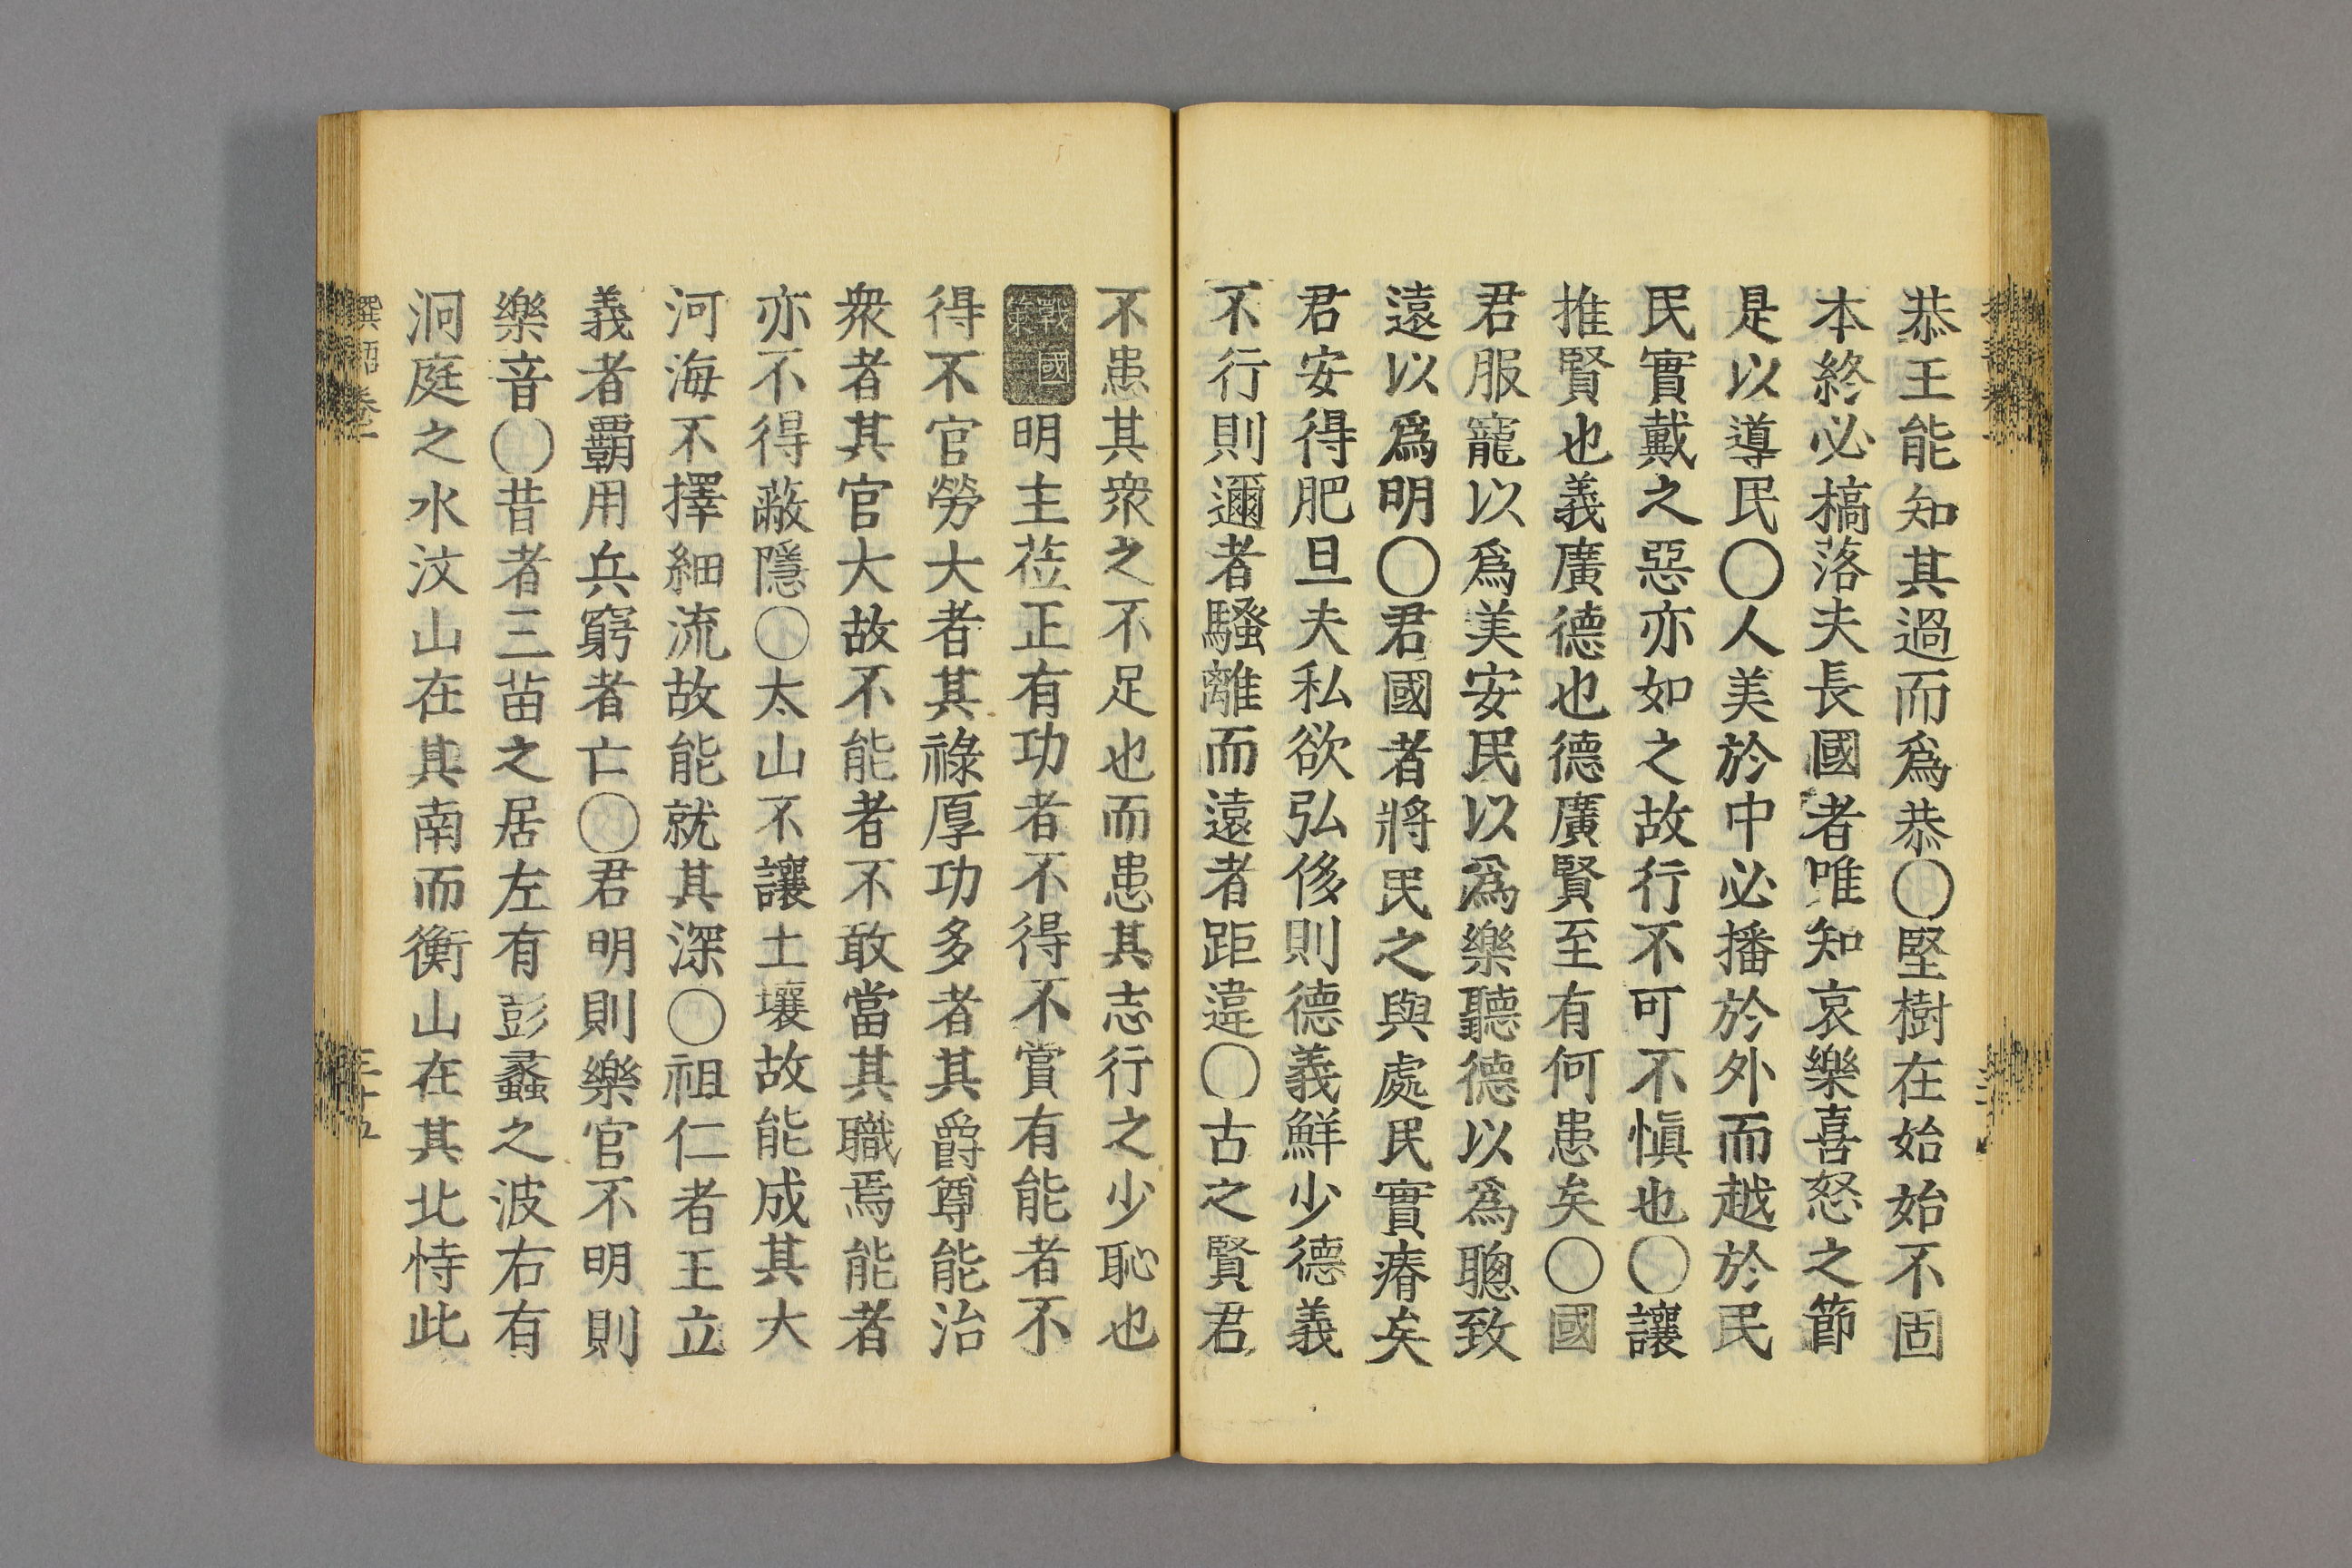 恭王能知其過而爲恭〇堅樹在始始不固
本終必槁落夫長國者唯知哀樂喜怒之節
是以導民〇人美於中必播於外而越於民
民實戴之惡亦如之故行不可不愼也〇讓
推賢也義廣德也德廣賢至有何患矣〇國
君服寵以爲美安民以爲樂聽德以爲聰致
遠以爲明〇君國者將民之與處民實瘠矣
君安得肥且夫私欲弘侈則德義鮮少德義
不行則邇者騷離而遠者距違〇古之賢君
不患其衆之不足也而患其志行之少恥也
戰國策 明主莅正有功者不得不賞有能者不
得不官勞大者其祿厚功多者其爵尊能治
衆者其官大故不能者不敢當其職焉能者
亦不得蔽隱〇太山不讓土壤故能成其大
河海不擇細流故能就其深〇祖仁者王立
義者霸用兵窮者亡〇君明則樂官不明則
樂音〇昔者三苗之居左有彭蠡之波右有
洞庭之水汶山在其南而衡山在其北恃此
卷一
三十五